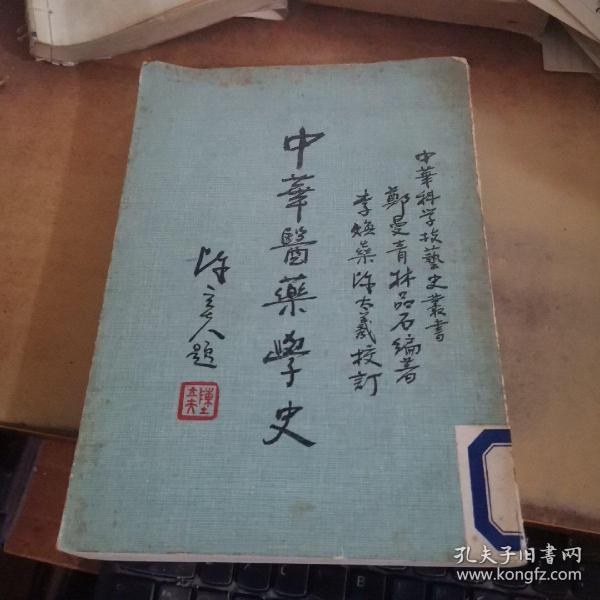 中華科学技藝史叢書
鄭曼青林品石編著
李煥燊陳太羲校訂
中華醫藥學史
陳立夫題
孔夫子旧书网
www.kongfz.com